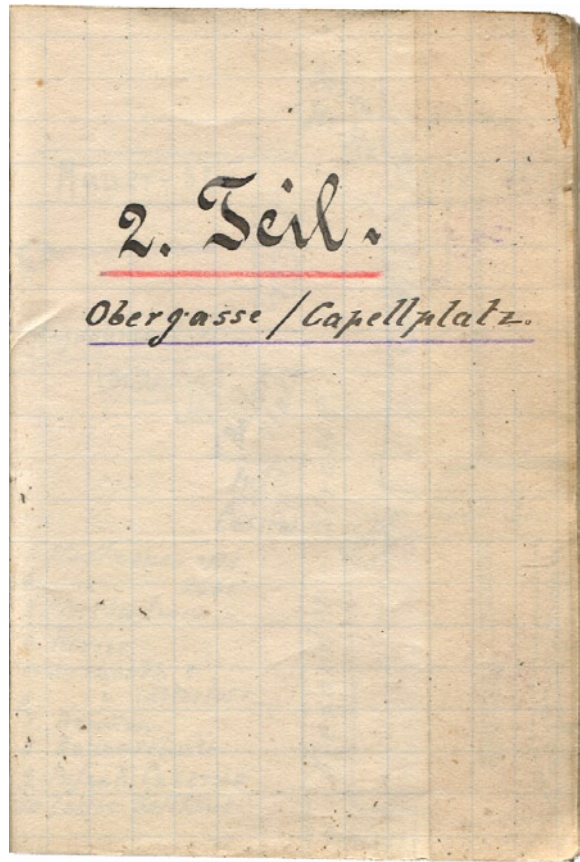 2. Teil.
Obergasse / Capellplatz.